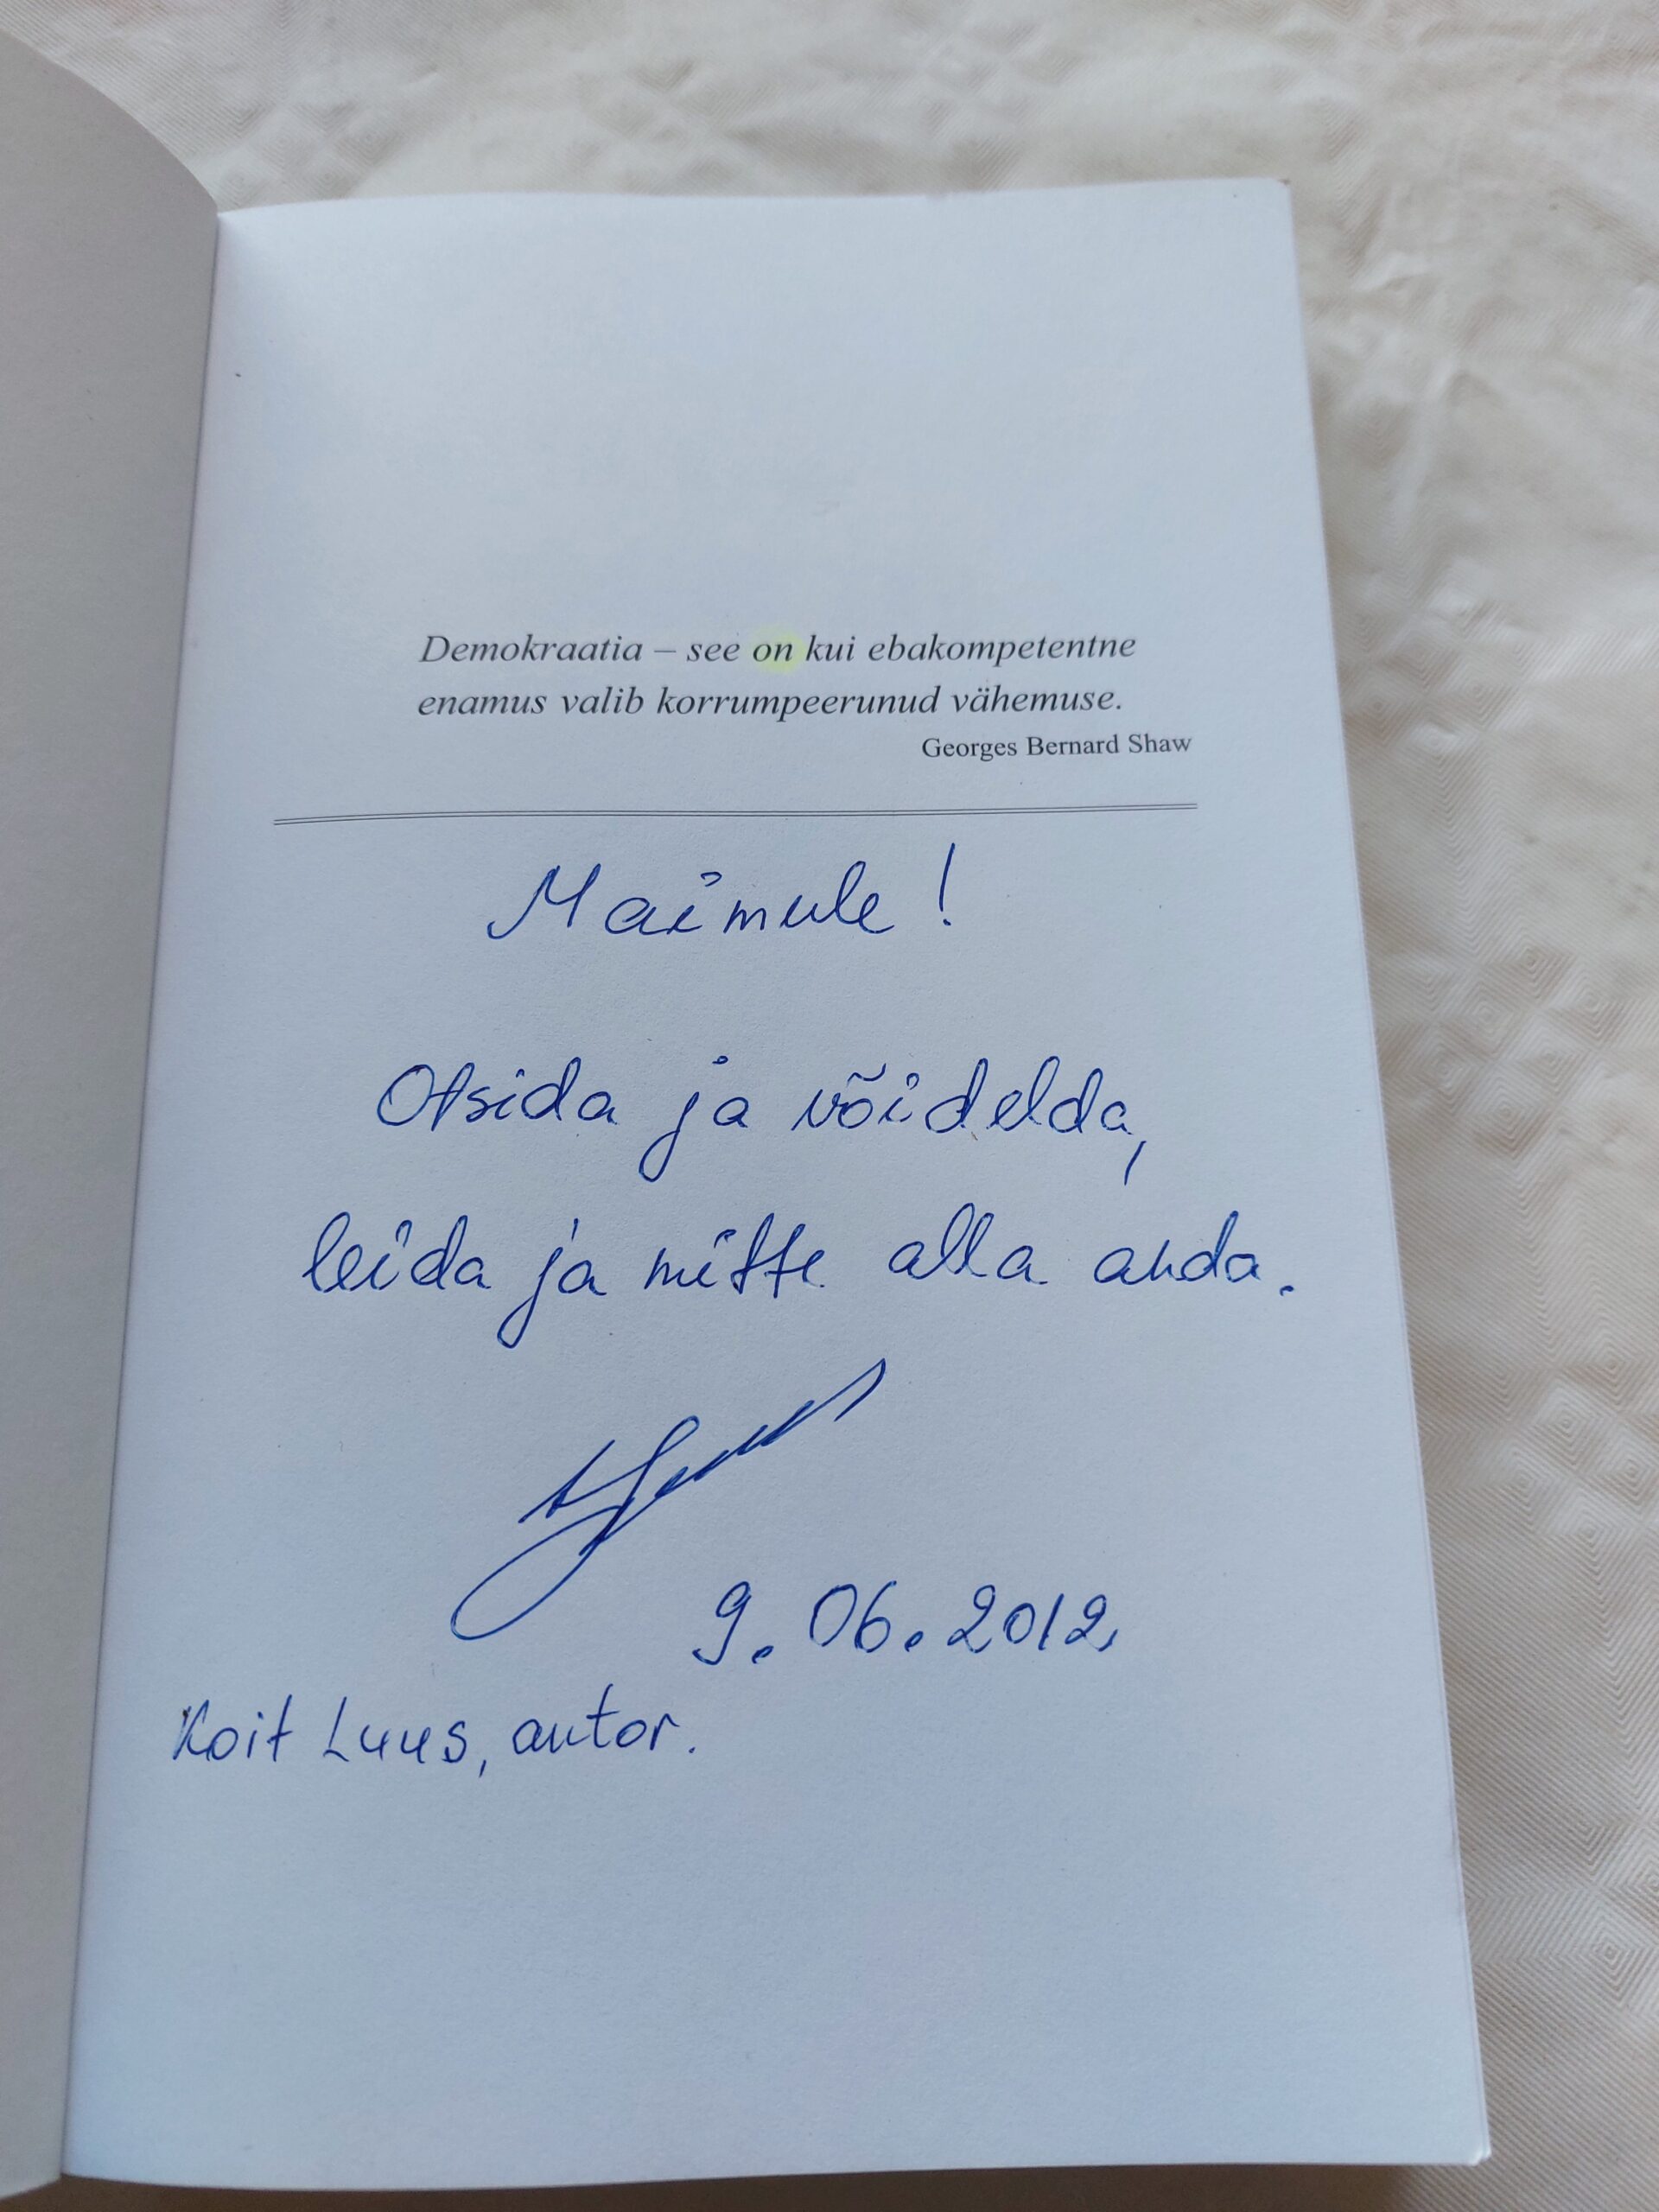 Demokraatia – see on kui ebakompetentne
enamus valib korrumpeerunud vähemuse.
Georges Bernard Shaw
Maimule!
Otsida ja võidelda,
leida ja mitte alla anda.
9.06.2012
Koit Luus, autor.